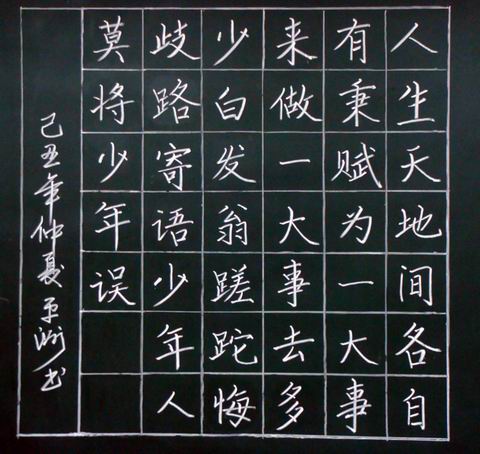 人生天地间各自
有秉赋为一大事
来做一大事去多
少白发翁蹉跎悔
歧路寄语少年人
莫将少年误
己丑年仲夏书